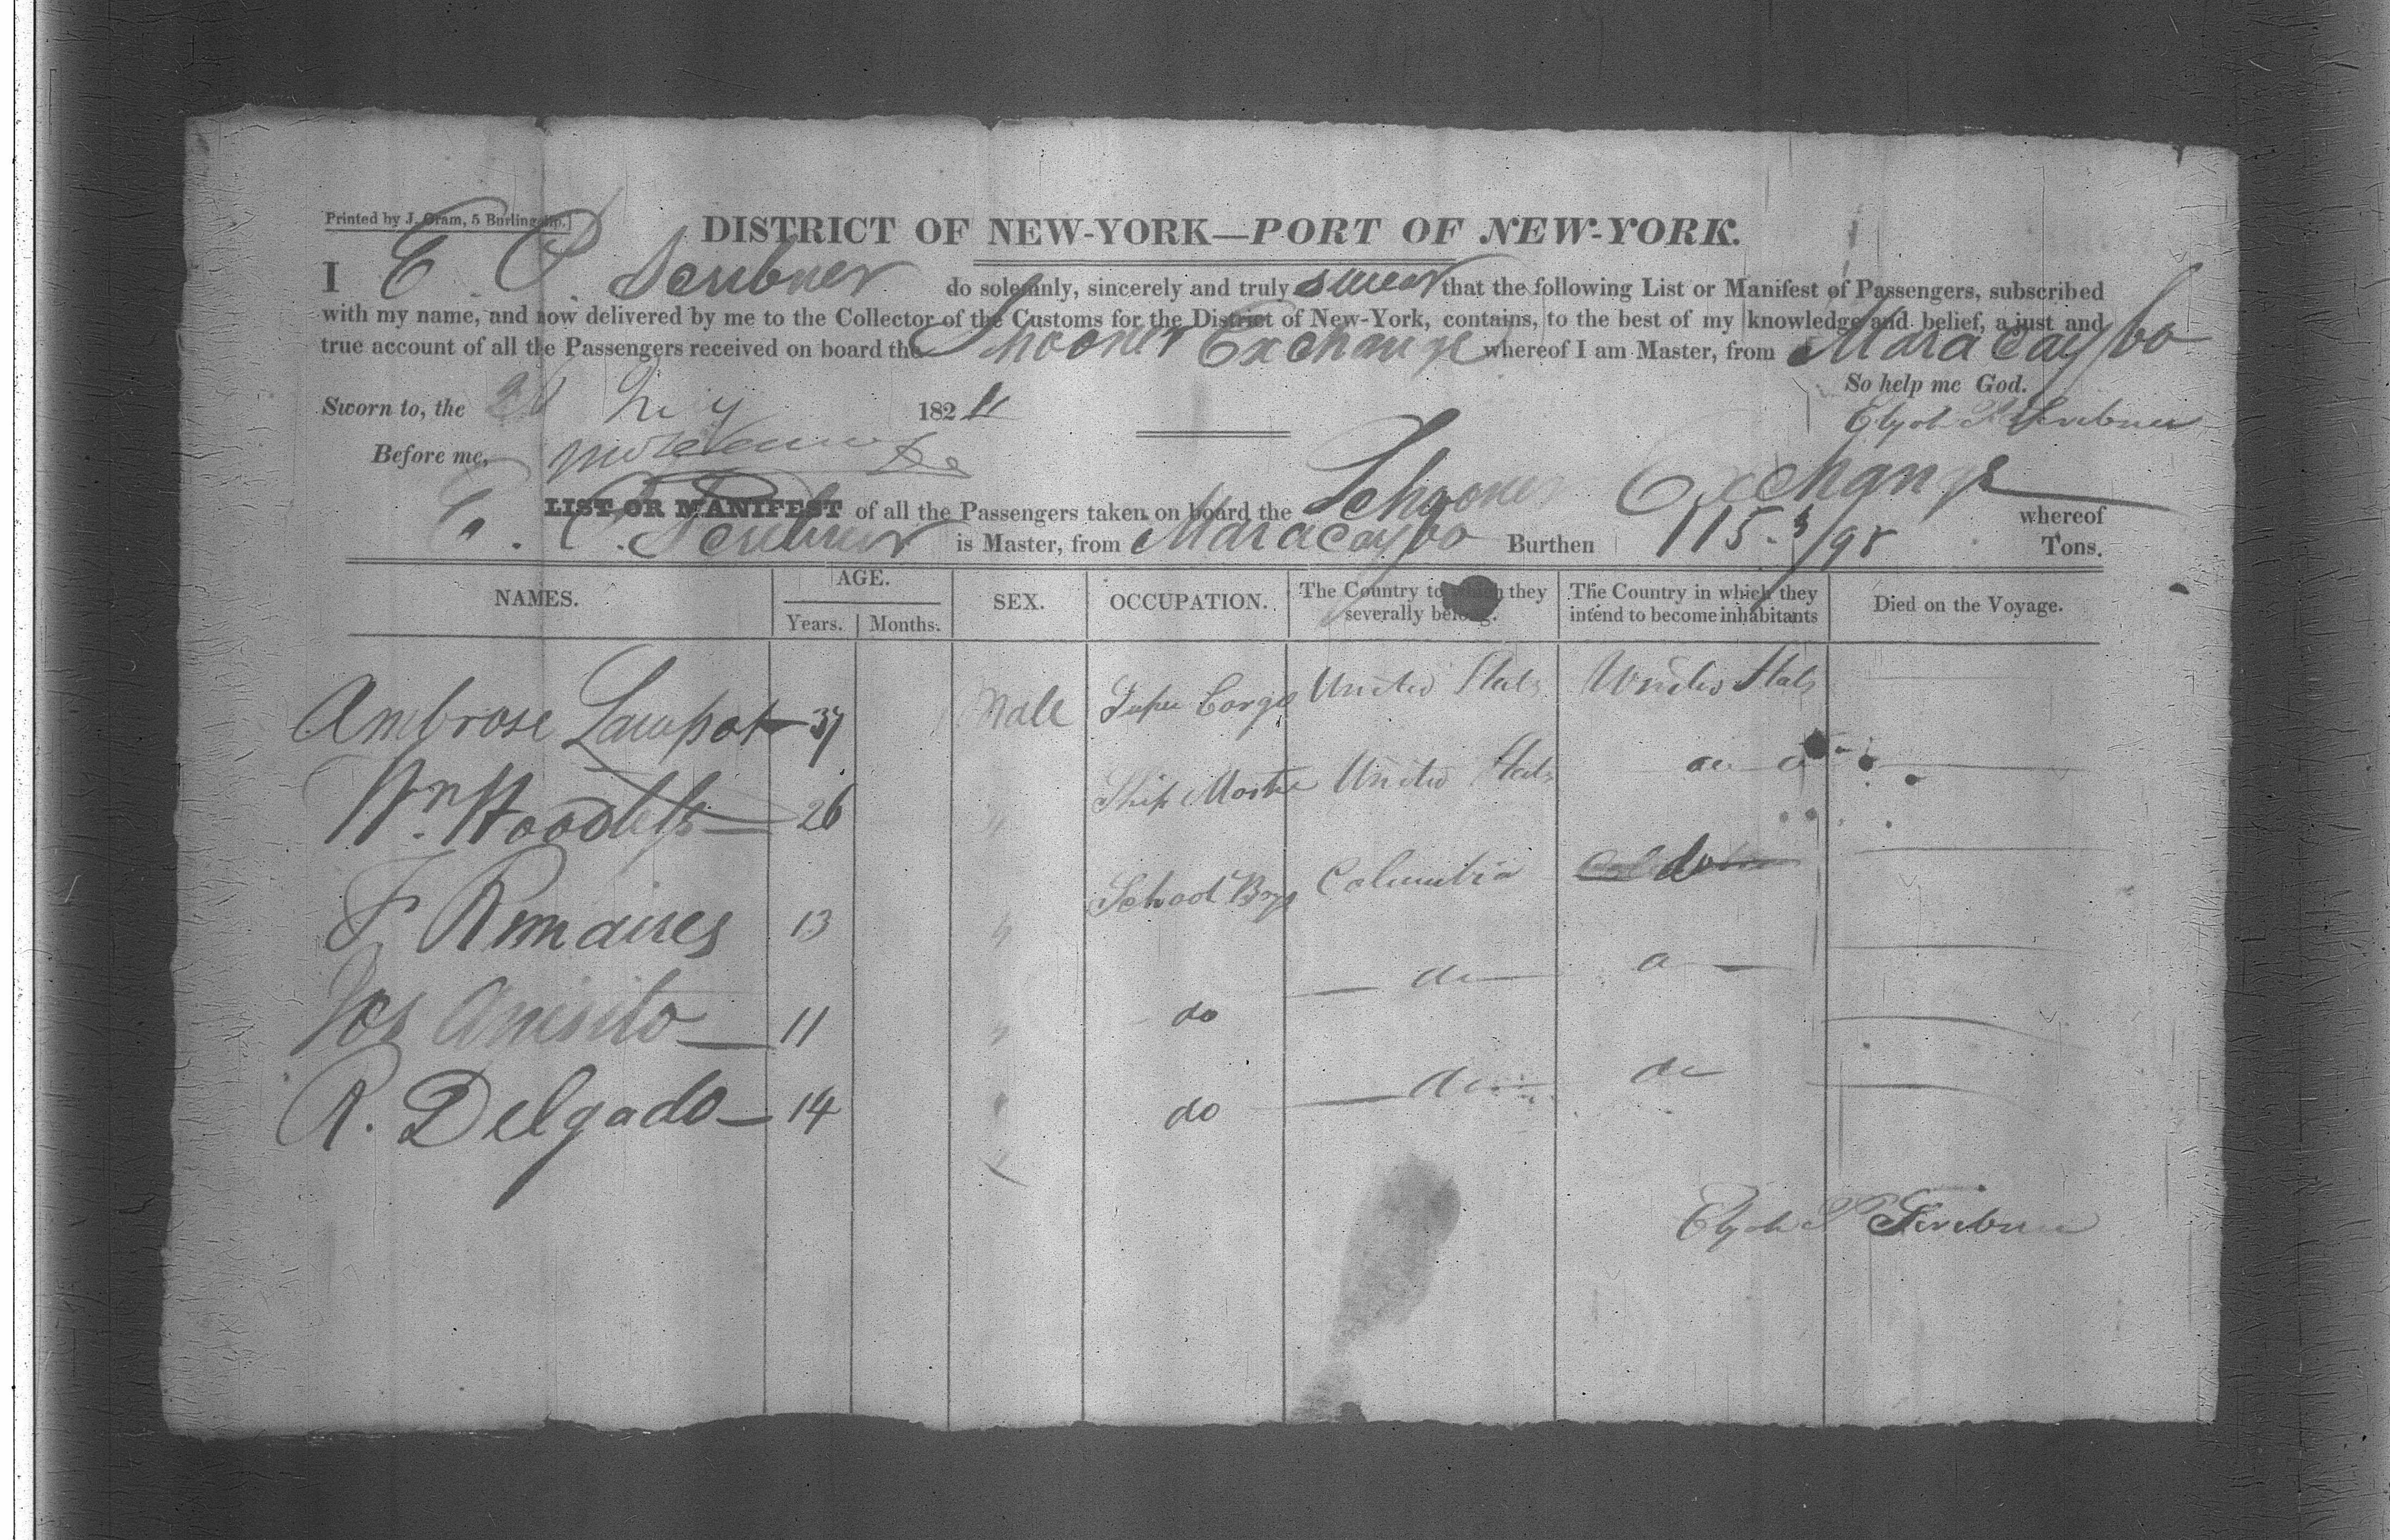 Printed by J. Oram, 5 Burling-slip.]
DISTRICT OF NEW-YORK—PORT OF NEW-YORK.
I E P Scribner do solemnly, sincerely and truly swear that the following List or Manifest of Passengers, subscribed
with my name, and now delivered by me to the Collector of the Customs for the District of New-York, contains, to the best of my knowledge and belief, a just and
true account of all the Passengers received on board the Schooner Exchange whereof I am Master, from Maracaybo
So help me God.
Sworn to, the 182
P Scribner
Before me,
LIST OR MANIFEST of all the Passengers taken on board the Schooner Exchange whereof
E. P. Scribner is Master, from Maracaybo Burthen 115. /98 Tons.
NAMES. AGE. Years. Months. SEX. OCCUPATION. The Country to which they severally belong. The Country in which they intend to become inhabitants Died on the Voyage.
Ambrose 37 Male Super Cargo United States United States
Wm 26 " Ship Master United States do
F 13 " School Boys Columbia do
11 " do do
R. Delgado 14 " do do do
P Scribner